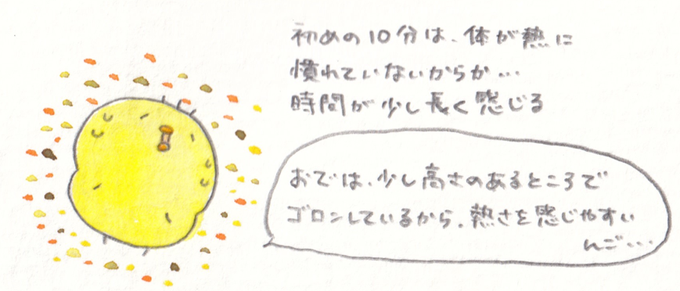 初めの10分は、体が熱に
慣れていないからか…
時間が少し長く感じる
おでは、少し高さのあるところで
ゴロンしているから、熱さを感じやすい
んご…